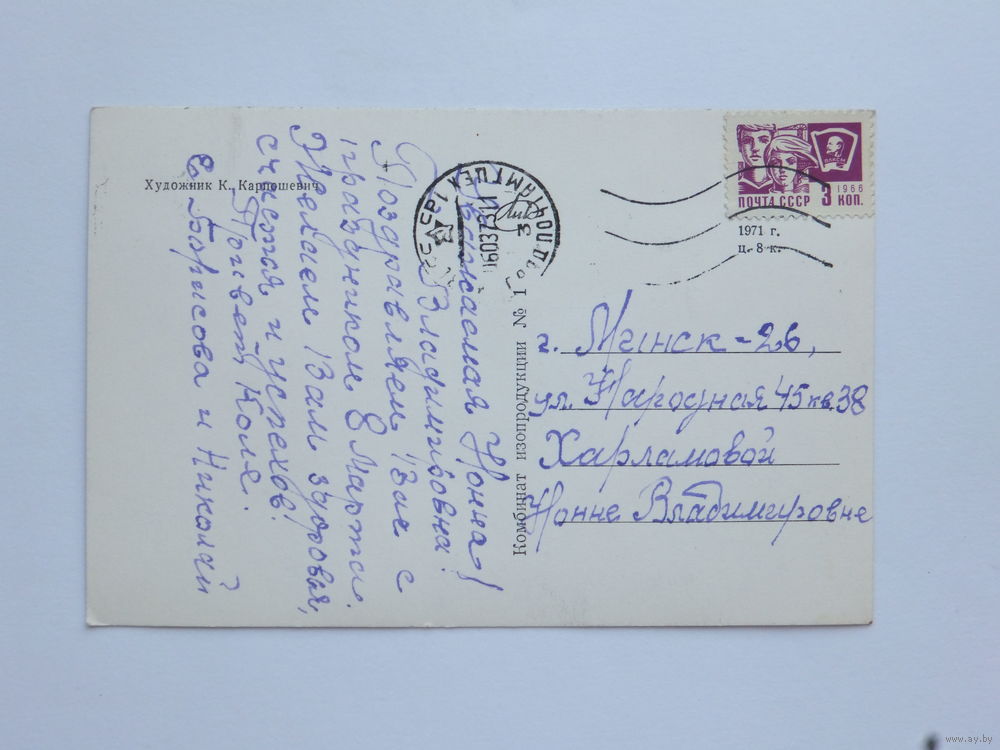 Художник К. Карпошевич
Уважаемая Нонна
Владимировна!
Поздравляем Вас с
праздником 8 Марта.
Желаем Вам здоровья,
счастья и успехов!
Привет Коле.
Е. Борисова и Николай
Комбинат изопродукции № 1
ВЛКСМ
1966
ПОЧТА СССР 3 КОП.
1971 г.
ц. 8 к.
г. Минск-26,
ул. Народная 45 кв. 38
Харламовой
Нонне Владимировне
www.ay.by